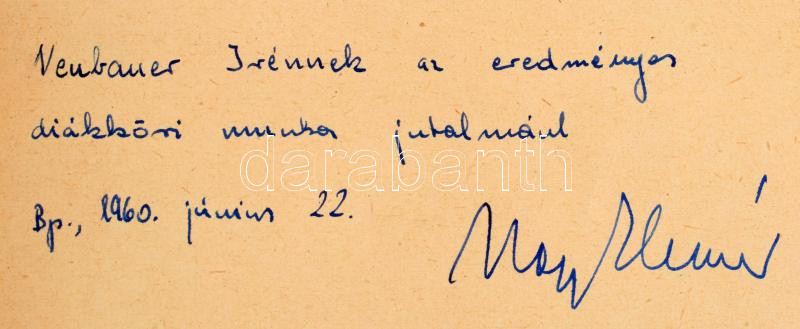 Neubauer Irénnek az eredményes
diákköri munka jutalmául
darabanth
Bp., 1960. június 22.
Nagy Elemér